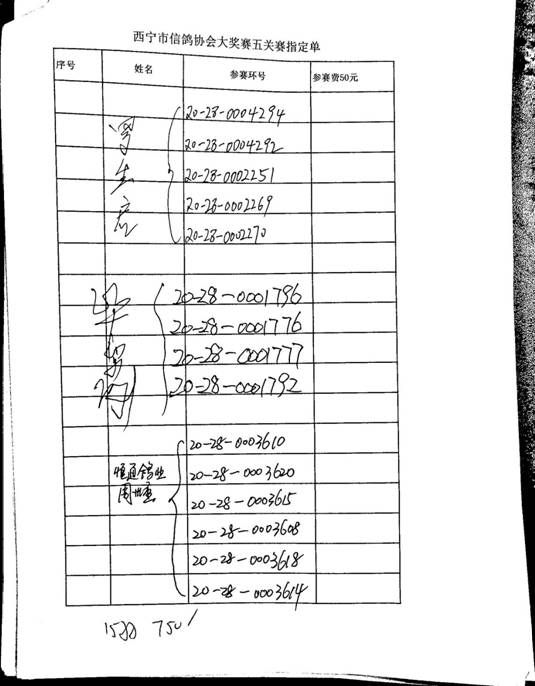 西宁市信鸽协会大奖赛五关赛指定单
序号 姓名 参赛环号 参赛费50元
20-28-0004294
20-28-0004292
20-28-0002251
20-28-0002269
20-28-0002270
20-28-0001796
20-28-0001776
20-28-0001777
20-28-0001792
20-28-0003610
恒通鸽业 20-28-0003620
20-28-0003615
20-28-0003608
20-28-0003618
20-28-0003614
750/